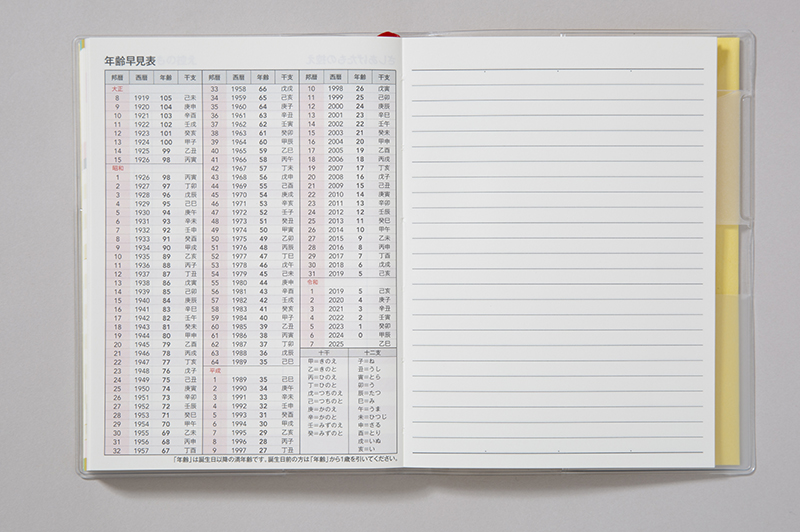 年齢早見表
邦暦 西暦 年齢 干支
大正
8 1919 105 己未
9 1920 104 庚申
10 1921 103 辛酉
11 1922 102 壬戌
12 1923 101 癸亥
13 1924 100 甲子
14 1925 99 乙丑
15 1926 98 丙寅
昭和
1 1926 98 丙寅
2 1927 97 丁卯
3 1928 96 戊辰
4 1929 95 己巳
5 1930 94 庚午
6 1931 93 辛未
7 1932 92 壬申
8 1933 91 癸酉
9 1934 90 甲戌
10 1935 89 乙亥
11 1936 88 丙子
12 1937 87 丁丑
13 1938 86 戊寅
14 1939 85 己卯
15 1940 84 庚辰
16 1941 83 辛巳
17 1942 82 壬午
18 1943 81 癸未
19 1944 80 甲申
20 1945 79 乙酉
21 1946 78 丙戌
22 1947 77 丁亥
23 1948 76 戊子
24 1949 75 己丑
25 1950 74 庚寅
26 1951 73 辛卯
27 1952 72 壬辰
28 1953 71 癸巳
29 1954 70 甲午
30 1955 69 乙未
31 1956 68 丙申
32 1957 67 丁酉
邦暦 西暦 年齢 干支
33 1958 66 戊戌
34 1959 65 己亥
35 1960 64 庚子
36 1961 63 辛丑
37 1962 62 壬寅
38 1963 61 癸卯
39 1964 60 甲辰
40 1965 59 乙巳
41 1966 58 丙午
42 1967 57 丁未
43 1968 56 戊申
44 1969 55 己酉
45 1970 54 庚戌
46 1971 53 辛亥
47 1972 52 壬子
48 1973 51 癸丑
49 1974 50 甲寅
50 1975 49 乙卯
51 1976 48 丙辰
52 1977 47 丁巳
53 1978 46 戊午
54 1979 45 己未
55 1980 44 庚申
56 1981 43 辛酉
57 1982 42 壬戌
58 1983 41 癸亥
59 1984 40 甲子
60 1985 39 乙丑
61 1986 38 丙寅
62 1987 37 丁卯
63 1988 36 戊辰
64 1989 35 己巳
平成
1 1989 35 己巳
2 1990 34 庚午
3 1991 33 辛未
4 1992 32 壬申
5 1993 31 癸酉
6 1994 30 甲戌
7 1995 29 乙亥
8 1996 28 丙子
9 1997 27 丁丑
邦暦 西暦 年齢 干支
10 1998 26 戊寅
11 1999 25 己卯
12 2000 24 庚辰
13 2001 23 辛巳
14 2002 22 壬午
15 2003 21 癸未
16 2004 20 甲申
17 2005 19 乙酉
18 2006 18 丙戌
19 2007 17 丁亥
20 2008 16 戊子
21 2009 15 己丑
22 2010 14 庚寅
23 2011 13 辛卯
24 2012 12 壬辰
25 2013 11 癸巳
26 2014 10 甲午
27 2015 9 乙未
28 2016 8 丙申
29 2017 7 丁酉
30 2018 6 戊戌
31 2019 5 己亥
令和
1 2019 5 己亥
2 2020 4 庚子
3 2021 3 辛丑
4 2022 2 壬寅
5 2023 1 癸卯
6 2024 0 甲辰
7 2025 乙巳
十干 十二支
甲=きのえ 子=ね
乙=きのと 丑=うし
丙=ひのえ 寅=とら
丁=ひのと 卯=う
戊=つちのえ 辰=たつ
己=つちのと 巳=み
庚=かのえ 午=うま
辛=かのと 未=ひつじ
壬=みずのえ 申=さる
癸=みずのと 酉=とり
戌=いぬ
亥=い
「年齢」は誕生日以降の満年齢です。誕生日前の方は「年齢」から1歳を引いてください。